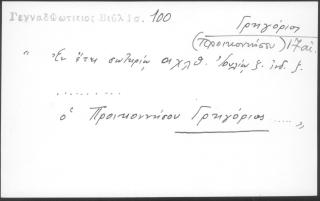 Γενναδιωτικος Βιβλ1ο. 100
Γρηγόριος
(Προικοννήσου) 17 αἰ.
" Ἐν ἔτει σωτηρίῳ αχλθ. Ἰουλίῳ ξ. ἰνδ. ξ.
.........
ὁ Προικοννήσου Γρηγόριος ..... "